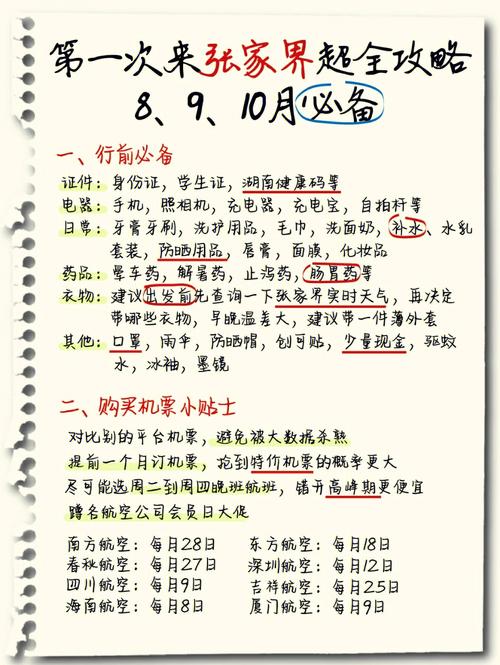 第一次来张家界超全攻略
8、9、10月必备
一、行前必备
证件：身份证，学生证，湖南健康码等
电器：手机，照相机，充电器，充电宝，自拍杆等
日常：牙膏牙刷，洗护用品，毛巾，洗面奶，补水、水乳
套装，防晒用品，唇膏，面膜，化妆品
药品：晕车药，解暑药，止泻药，肠胃药等
衣物：建议出发前先查询一下张家界实时天气，再决定
带哪些衣物，早晚温差大，建议带一件薄外套
其他：口罩，雨伞，防晒帽，创可贴，少量现金，驱蚊
水，冰袖，墨镜
二、购买机票小贴士
对比别的平台机票，避免被大数据杀熟
提前一个月订机票，抢到特价机票的概率更大
尽可能选周二到周四晚班航班，错开高峰期更便宜
蹲各航空公司会员日大促
南方航空：每月28日 东方航空：每月18日
春秋航空：每月27日 深圳航空：每月12日
四川航空：每月9日 吉祥航空：每月25日
海南航空：每月8日 厦门航空：每月9日